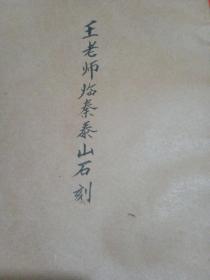 王老师临秦泰山石刻